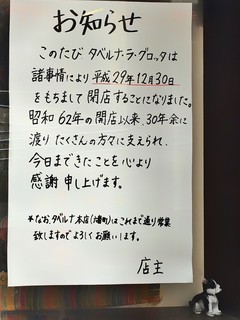 お知らせ
このたび タベルナ・ラ・グロッタは
諸事情により 平成29年12月30日
をもちまして 閉店することになりました。
昭和62年の開店以来、30年余に
渡り たくさんの方々に支えられ、
今日まできたことを心より
感謝申し上げます。
*なお、タベルナ本店(六番町)はこれまで通り営業
致しますのでよろしくお願いします。
店主